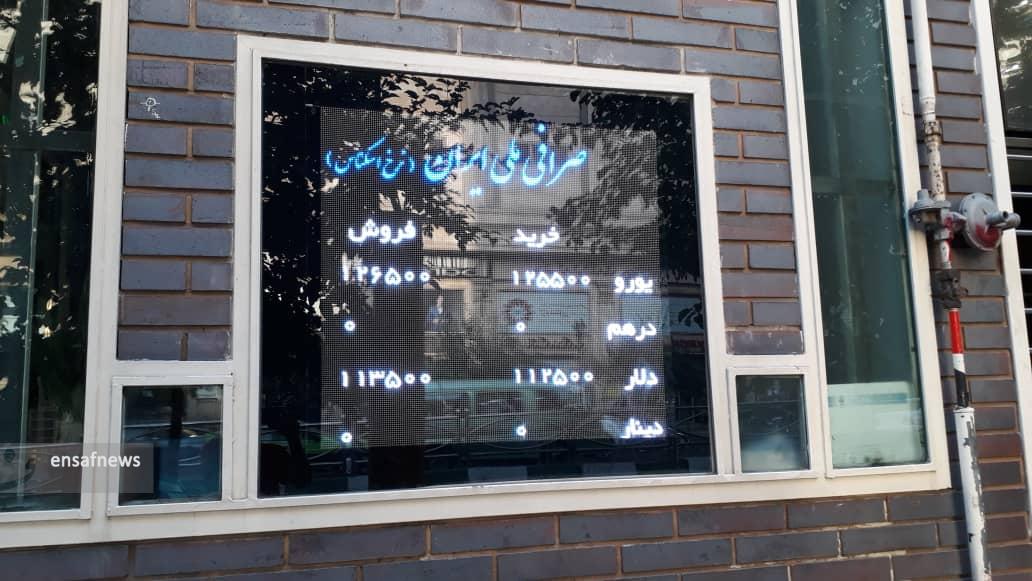 صرافی ملی ایران (نرخ اسکناس)
خرید فروش
یورو ۱۲۵۵۰۰ ۱۲۶۵۰۰
درهم ۰ ۰
دلار ۱۱۲۵۰۰ ۱۱۳۵۰۰
دینار ۰ ۰
ensafnews